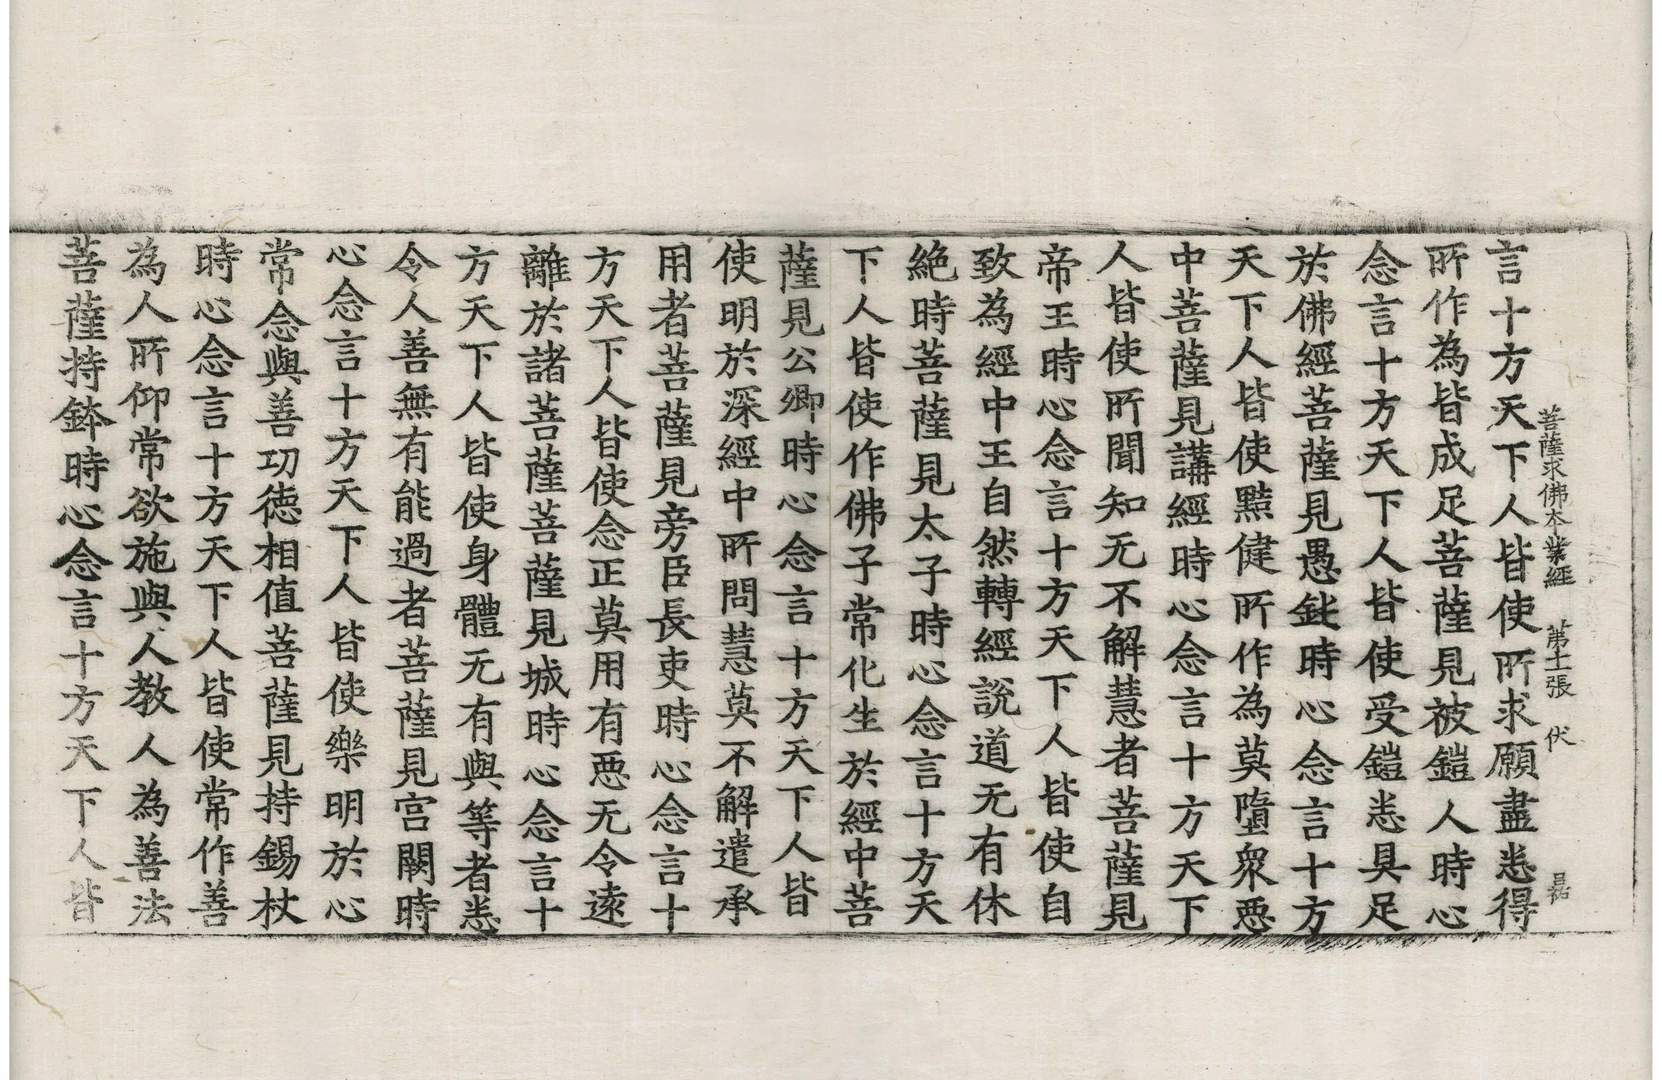 菩薩求佛本業經 第十一張 伏
言十方天下人皆使所求願盡悉得
所作為皆成足菩薩見被鎧人時心
念言十方天下人皆使受鎧悉具足
於佛經菩薩見愚鈍時心念言十方
天下人皆使黠健所作為莫墮衆惡
中菩薩見講經時心念言十方天下
人皆使所聞知无不解慧者菩薩見
帝王時心念言十方天下人皆使自
致為經中王自然轉經說道无有休
絶時菩薩見太子時心念言十方天
下人皆使作佛子常化生於經中菩
薩見公卿時心念言十方天下人皆
使明於深經中所問慧莫不解遣承
用者菩薩見旁臣長吏時心念言十
方天下人皆使念正莫用有惡无令遠
離於諸菩薩菩薩見城時心念言十
方天下人皆使身體无有與等者悉
令人善無有能過者菩薩見宫闕時
心念言十方天下人皆使樂明於心
常念與善功德相值菩薩見持錫杖
時心念言十方天下人皆使常作善
為人所仰常欲施與人教人為善法
菩薩持鉢時心念言十方天下人皆